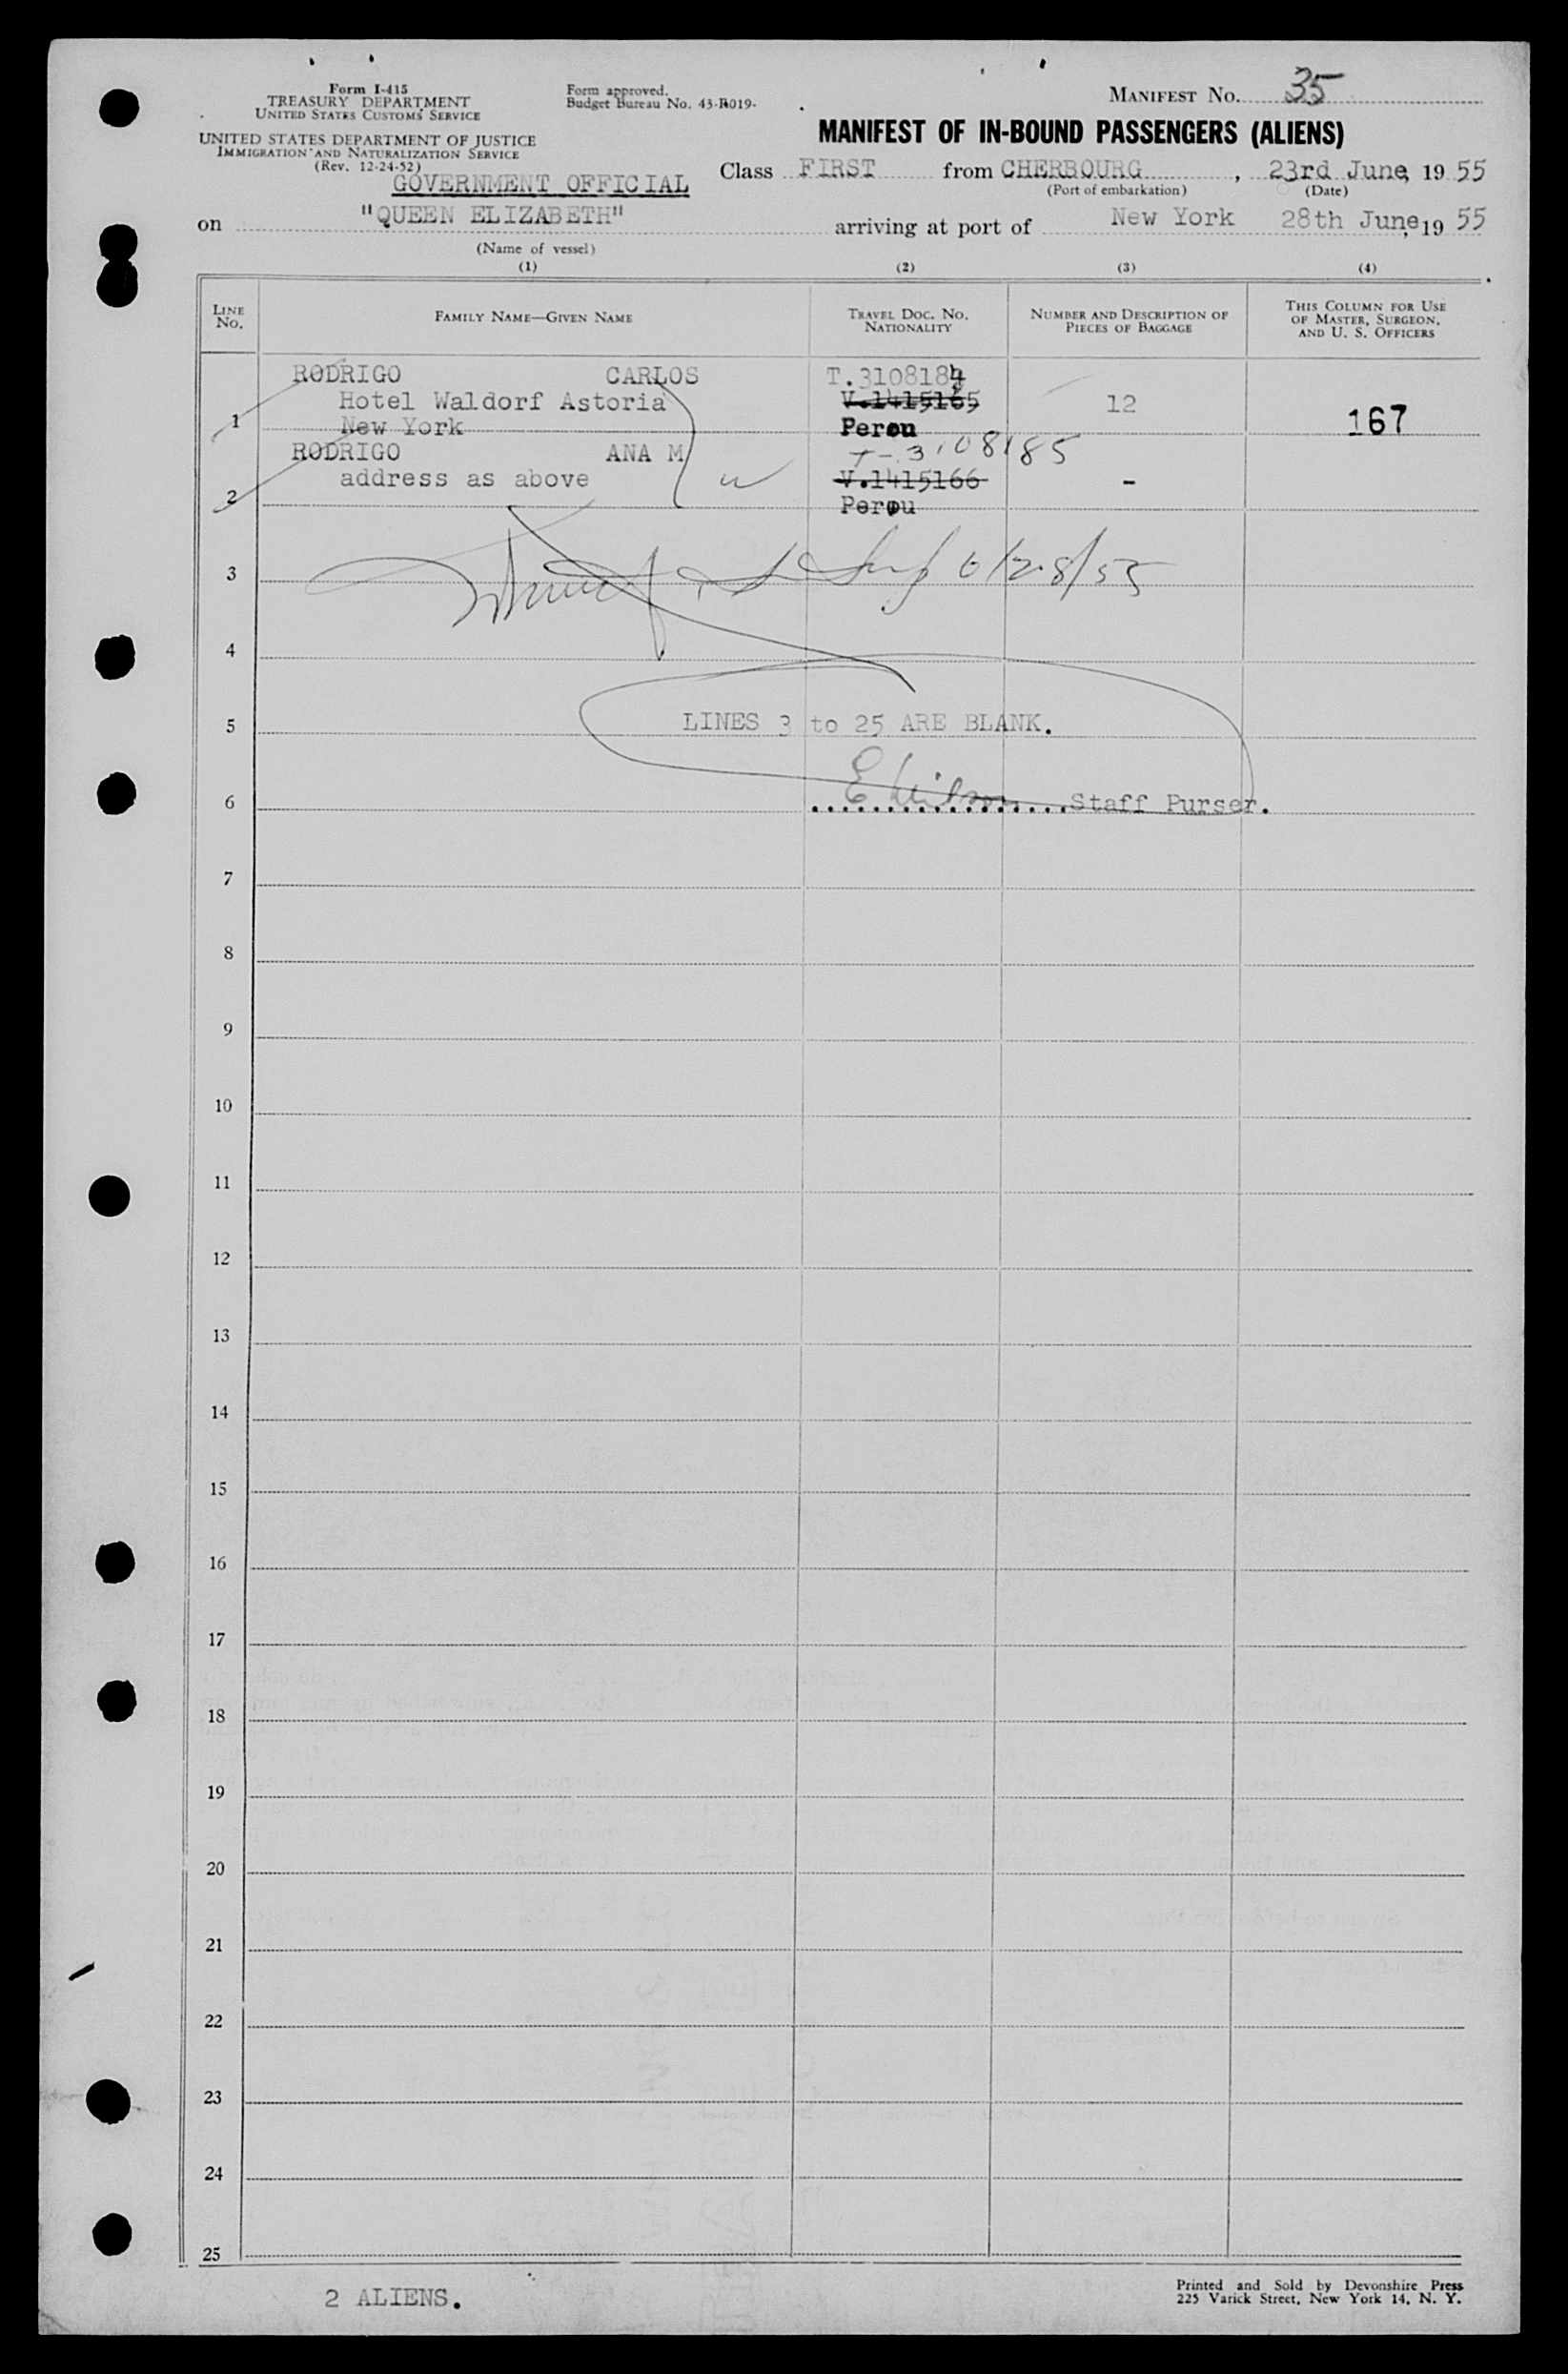 Form I-415
TREASURY DEPARTMENT
UNITED STATES CUSTOMS SERVICE
UNITED STATES DEPARTMENT OF JUSTICE
IMMIGRATION AND NATURALIZATION SERVICE
(Rev. 12-24-52)
Form approved.
Budget Bureau No. 43-R019-
MANIFEST No. 35
MANIFEST OF IN-BOUND PASSENGERS (ALIENS)
GOVERNMENT OFFICIAL
Class FIRST from CHERBOURG, 23rd June, 19 55
(Port of embarkation) (Date)
on "QUEEN ELIZABETH" arriving at port of New York 28th June, 19 55
(Name of vessel)
(1) (2) (3) (4)
LINE No.
FAMILY NAME—GIVEN NAME
TRAVEL DOC. NO. NATIONALITY
NUMBER AND DESCRIPTION OF PIECES OF BAGGAGE
THIS COLUMN FOR USE OF MASTER, SURGEON, AND U. S. OFFICERS
RODRIGO CARLOS T.3108184
Hotel Waldorf Astoria V.1415165 12
1 New York Perou 167
RODRIGO ANA M T-3108185
address as above V.1415166 -
2 Perou
3 6/28/55
4
5 LINES 3 to 25 ARE BLANK.
6 E Wilson Staff Purser.
7
8
9
10
11
12
13
14
15
16
17
18
19
20
21
22
23
24
25
2 ALIENS.
Printed and Sold by Devonshire Press
225 Varick Street, New York 14, N. Y.